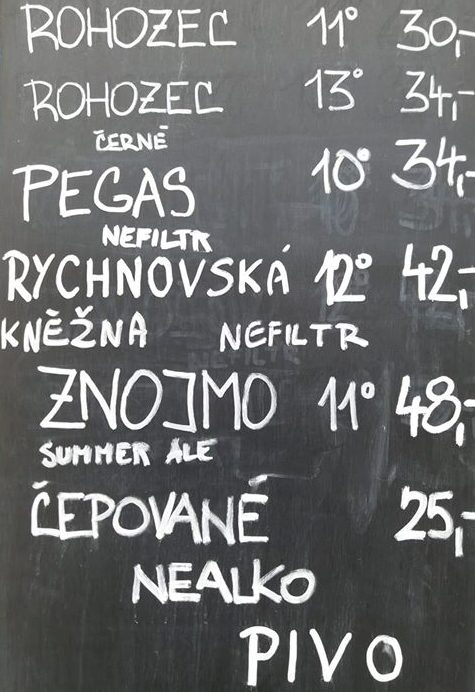 ROHOZEC 11° 30,-
ROHOZEC 13° 34,-
ČERNÉ
PEGAS 10° 34,-
NEFILTR
RYCHNOVSKÁ 12° 42,-
KNĚŽNA NEFILTR
ZNOJMO 11° 48,-
SUMMER ALE
ČEPOVANÉ 25,-
NEALKO
PIVO